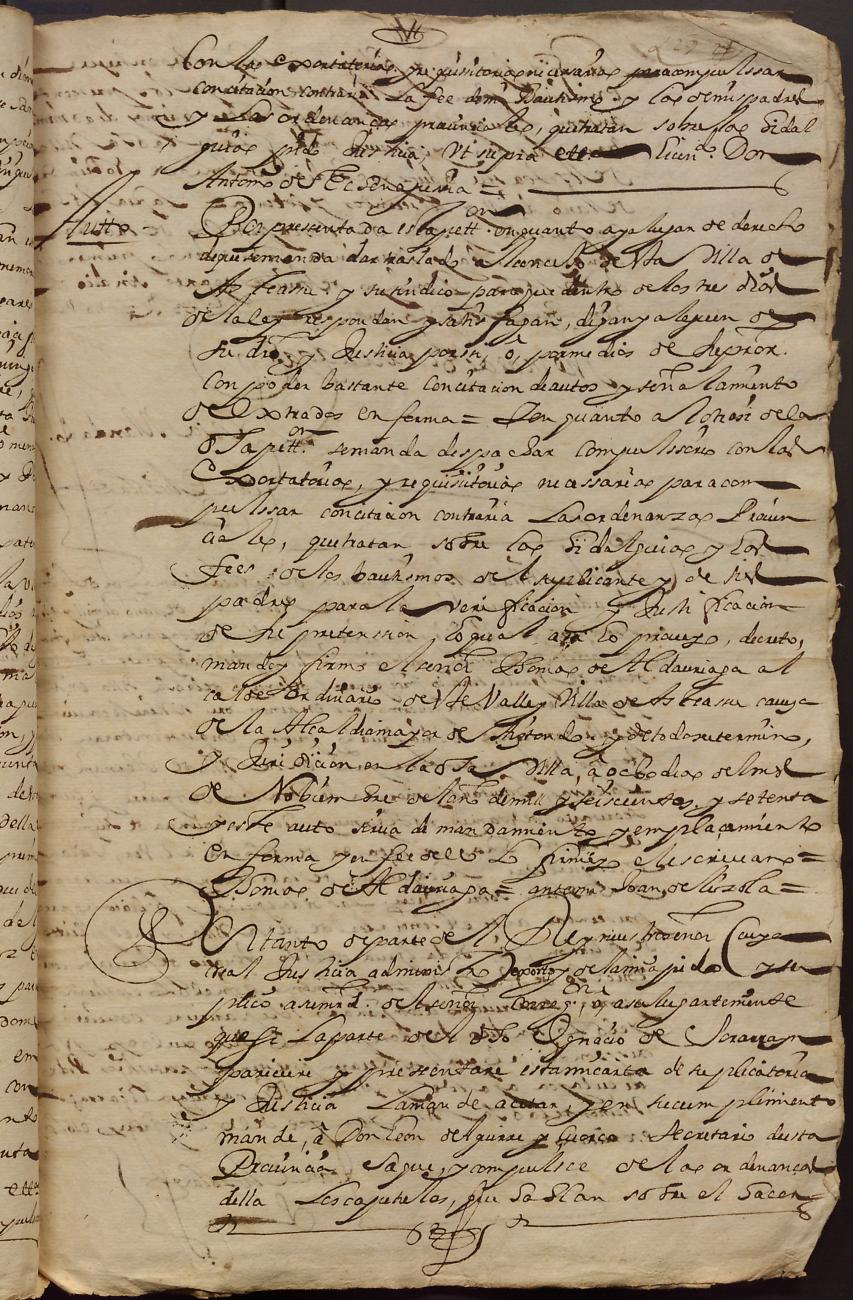 Con las exortatorias, y requisitorias nicesarias paracompulssar
concitacion contraria La fee demi Bautismo y las demis padres
y Las ordenanças prouinciales, quetratan sobre las Hidal
guias pido Justicia, Vt supra etta Licen.do Don
Antonio de
Autto = Por presentada esta pett.on en quanto aya lugar de derecho
dequesemanda dar traslado alconcejo de esta Villa de
Asteasu y su sindico paraque dentro delostres dias
dela ley respondan y satisfagan, digan y aleguen de
su dro. y Justicia por si, ô, pormedio de su pror.
con poder bastante concitacion deautos y señalamiento
de Extrados en forma = Y en quanto al otrosi dela
dsa pett.on semanda despachar compulssorio con las
Exortatorias, y requisitorias necessarias para com
pulssar concitacion contraria Las ordenanzas Prouin
ciales, quetratan sobre las Hidalguias y las
fees de los bautismos del suplicante y de sus
padres para la verificacion y Justificacion
de su pretension Loqual assi Lo proueyo, decreto,
mando y firmo elseñor Thomas de Aldauriaga al
calde Ordinario de este Valle y Villa de Asteasu cauge
de la Alcaldia mayor de y detodo su termino,
y Juridicion en la dsa Villa, a ocho dias del mes
de Nobiembre del año demill y seiscientos, y setenta
y este auto sirua de mandamiento y emplaçamiento
en forma y en fee de ello firmé yo el escriuano =
Thomas de Aldauriaga = antemi Joan de Lizola =
Portanto departe del Rey nuestro señor Cuya
Real Justicia administro exorto y dela mia pido y su
plico a sumrd. del señor Correg.or, o, a su lugarteniente
que si La parte del dsho Ygnacio de Sorarrayn
pareciere y pressentare estamicarta de suplicatoria
y Justicia Lamande acetar, y en su cumplimiento
mande, â Don Leon de Aguirre y Çurco Secretario desta
Prouincia Saque, y compulsse de las ordenanças
della Los capitulos, que Hablan sobre el Hacer